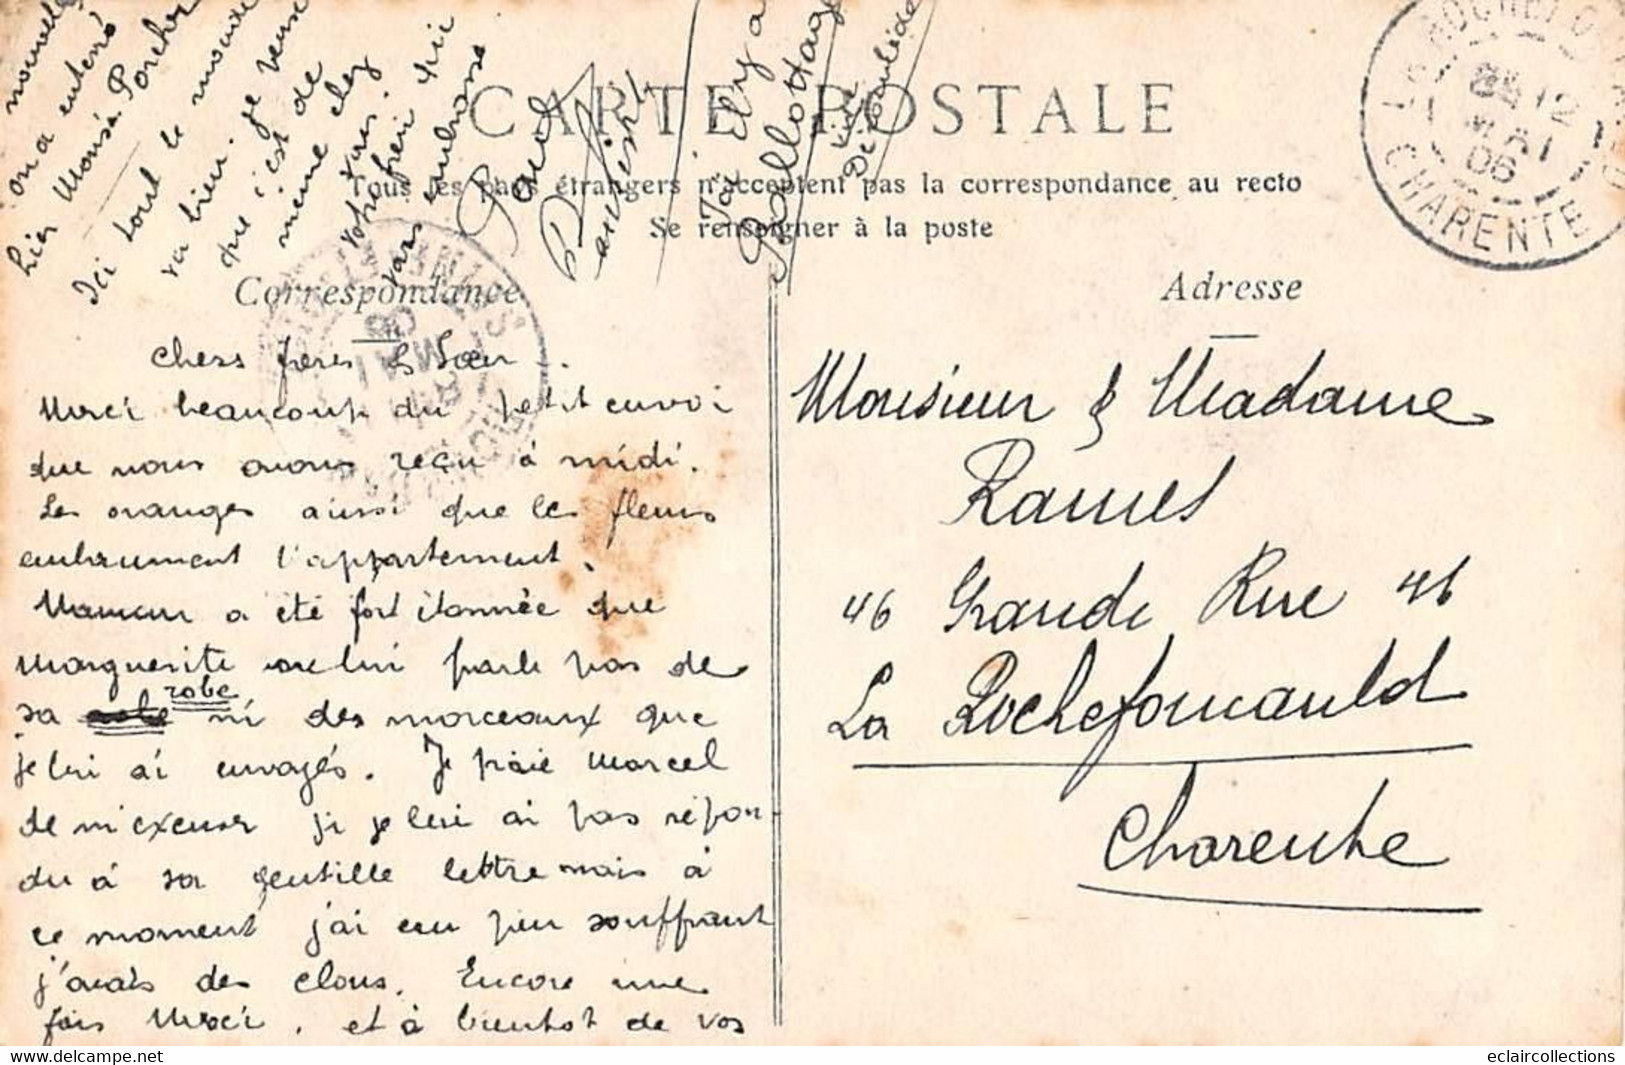 CARTE POSTALE
Tous les pays étrangers n'acceptent pas la correspondance au recto
Se renseigner à la poste
Correspondance
Adresse
Chers frères & Sœur
Merci beaucoup du petit envoi
que nous avons reçu à midi.
Les oranges ainsi que les fleurs
embaument l'appartement.
Maman a été fort étonnée que
Marguerite ne lui parle pas de
robe
sa ni des morceaux que
je lui ai envoyés. Je prie Marcel
de m'excuser si je lui ai pas répon-
du à sa gentille lettre mais à
ce moment j'ai eu peu souffrant
j'avais des clous. Encore une
fois Merci, et à bientôt de vos
nouvelles
on a enterré
hier Monsr Porcher
Ici tout le monde
va bien. je pense
que c'est de
même chez
vous.
Votre frère qui
vous embrasse
Paul
Monsieur & Madame
Rames
46 Grande Rue 46
La Rochefoucauld
Charente
LA ROCHEFOUCAULD
12
MAI
06
CHARENTE
eclaircollections